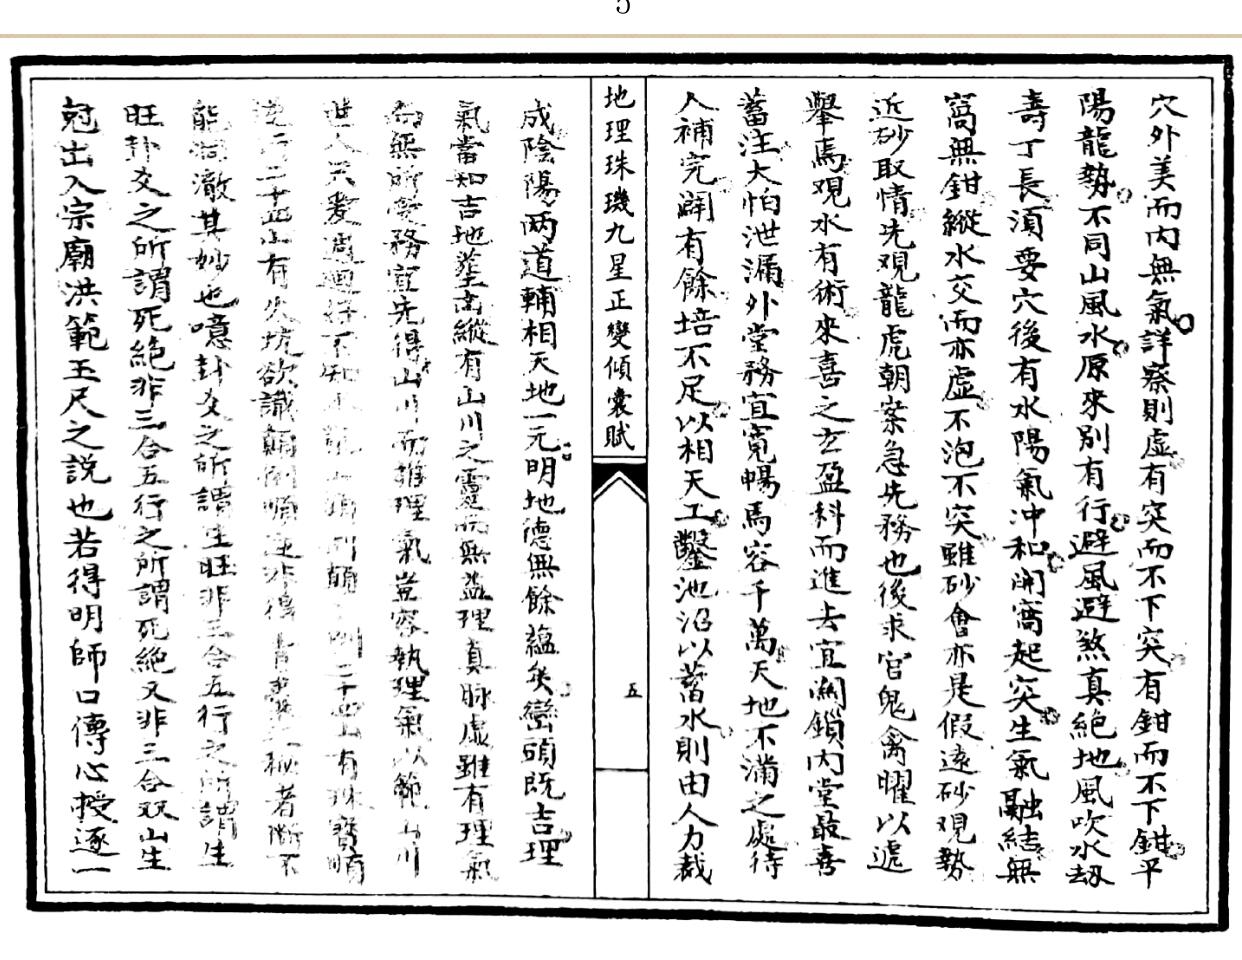 5
穴外美而内無氣詳察則虛有突而不下突有鉗而不下鉗平
陽龍勢不同山風水原來別有行避風避煞真絕地風吹水刼
壽丁長湏要穴後有水陽氣冲和開窩起突生氣融結無
窩無鉗縱水交而亦虛不泡不突雖砂會亦是假遠砂观勢
近砂取情先观龍虎朝案急先務也後求官鬼禽曜以遞
舉馬观水有術來喜之玄盈科而進去宜関鎖内堂最喜
蓄注大怕泄漏外堂務宜寬暢馬容千萬天地不滿之處待
人補完闢有餘培不足以相天工鑿池沼以蓄水則由人力裁
地理珠璣九星正變傾囊賦
五
成陰陽两道輔相天地一元明地德無餘蘊矣巒頭既吉理
氣當知吉地塟高縱有山川之靈而無益理真脉虛雖有理氣
而無所受務宜先得山川而雖理氣豈容執理氣以範山川
世人只爱 二十四山有珠寶順
二十四山有火坑欲識顛倒順逆非得青囊之秘者斷不
能洞澈其妙也噫卦爻之所謂生旺非三合五行之所謂生
旺卦爻之所謂死絕非三合五行之所謂死絕又非三合双山生
尅出入宗廟洪範玉尺之説也若得明師口傳心授逐一